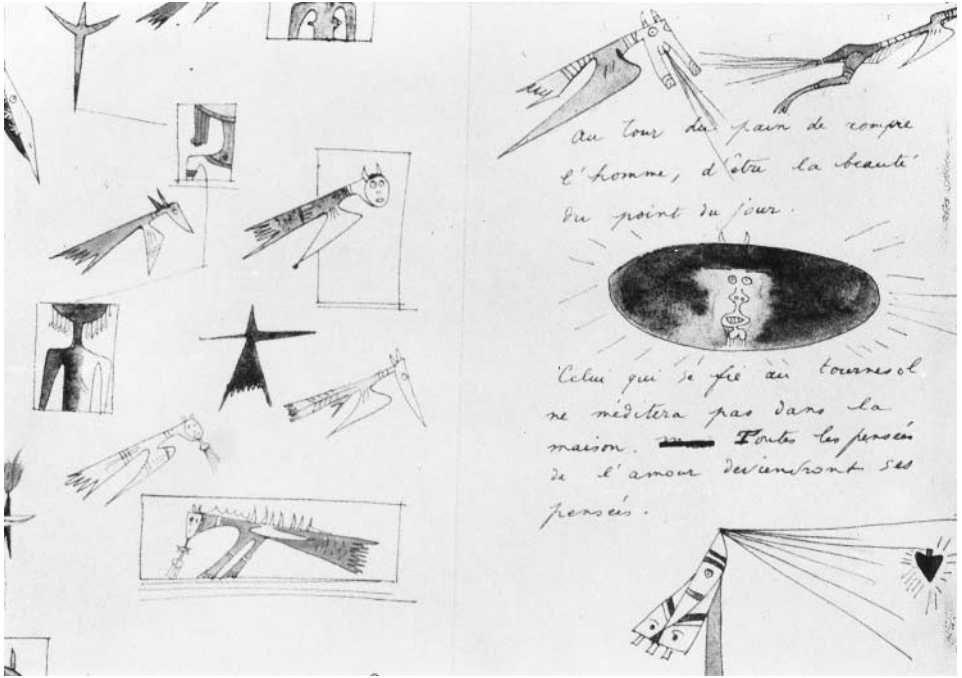 au tour du pain de rompre
l'homme, d'être la beauté
du point du jour.
Celui qui se fie au tournesol
ne méditera pas dans la
maison. Toutes les pensées
de l'amour deviendront ses
pensées.